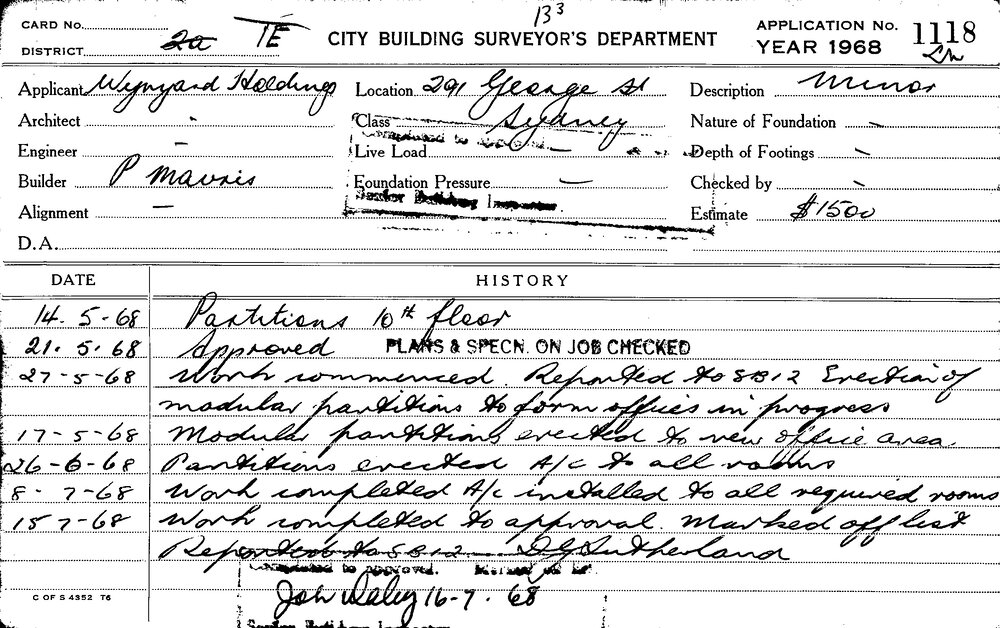 13³
CARD No.
2a TE
DISTRICT
CITY BUILDING SURVEYOR'S DEPARTMENT
APPLICATION No. 1118
YEAR 1968
Applicant Wynyard Holdings Location 291 George St Description Minor
Architect - Class Sydney Nature of Foundation -
Completed to approval.
Engineer - Live Load - Depth of Footings -
Builder P Mavris Foundation Pressure - Checked by -
Senior Building Inspector.
Alignment - Estimate $1500
D.A.
DATE HISTORY
14. 5-68 Partitions 10th floor
21. 5. 68 Approved PLANS & SPECN. ON JOB CHECKED
27-5-68 Work commenced. Reported to SB12 Erection of
modular partitions to form offices in progress
17-5-68 Modular partitions erected to new office area.
26-6-68 Partitions erected A/c to all rooms
8- 7-68 Work completed A/c installed to all required rooms
15 7-68 Work completed to approval. Marked off list
Reported to SB12 D G Sutherland
Completed to approval. Marked off
John Daley 16-7. 68
C OF S 4352 T6
Senior Building Inspector